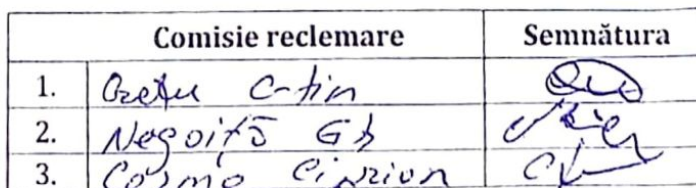 Comisie reclemare Semnătura
1. Crețu C-tin
2. Negoiță Gh
3. Cosma Ciprian